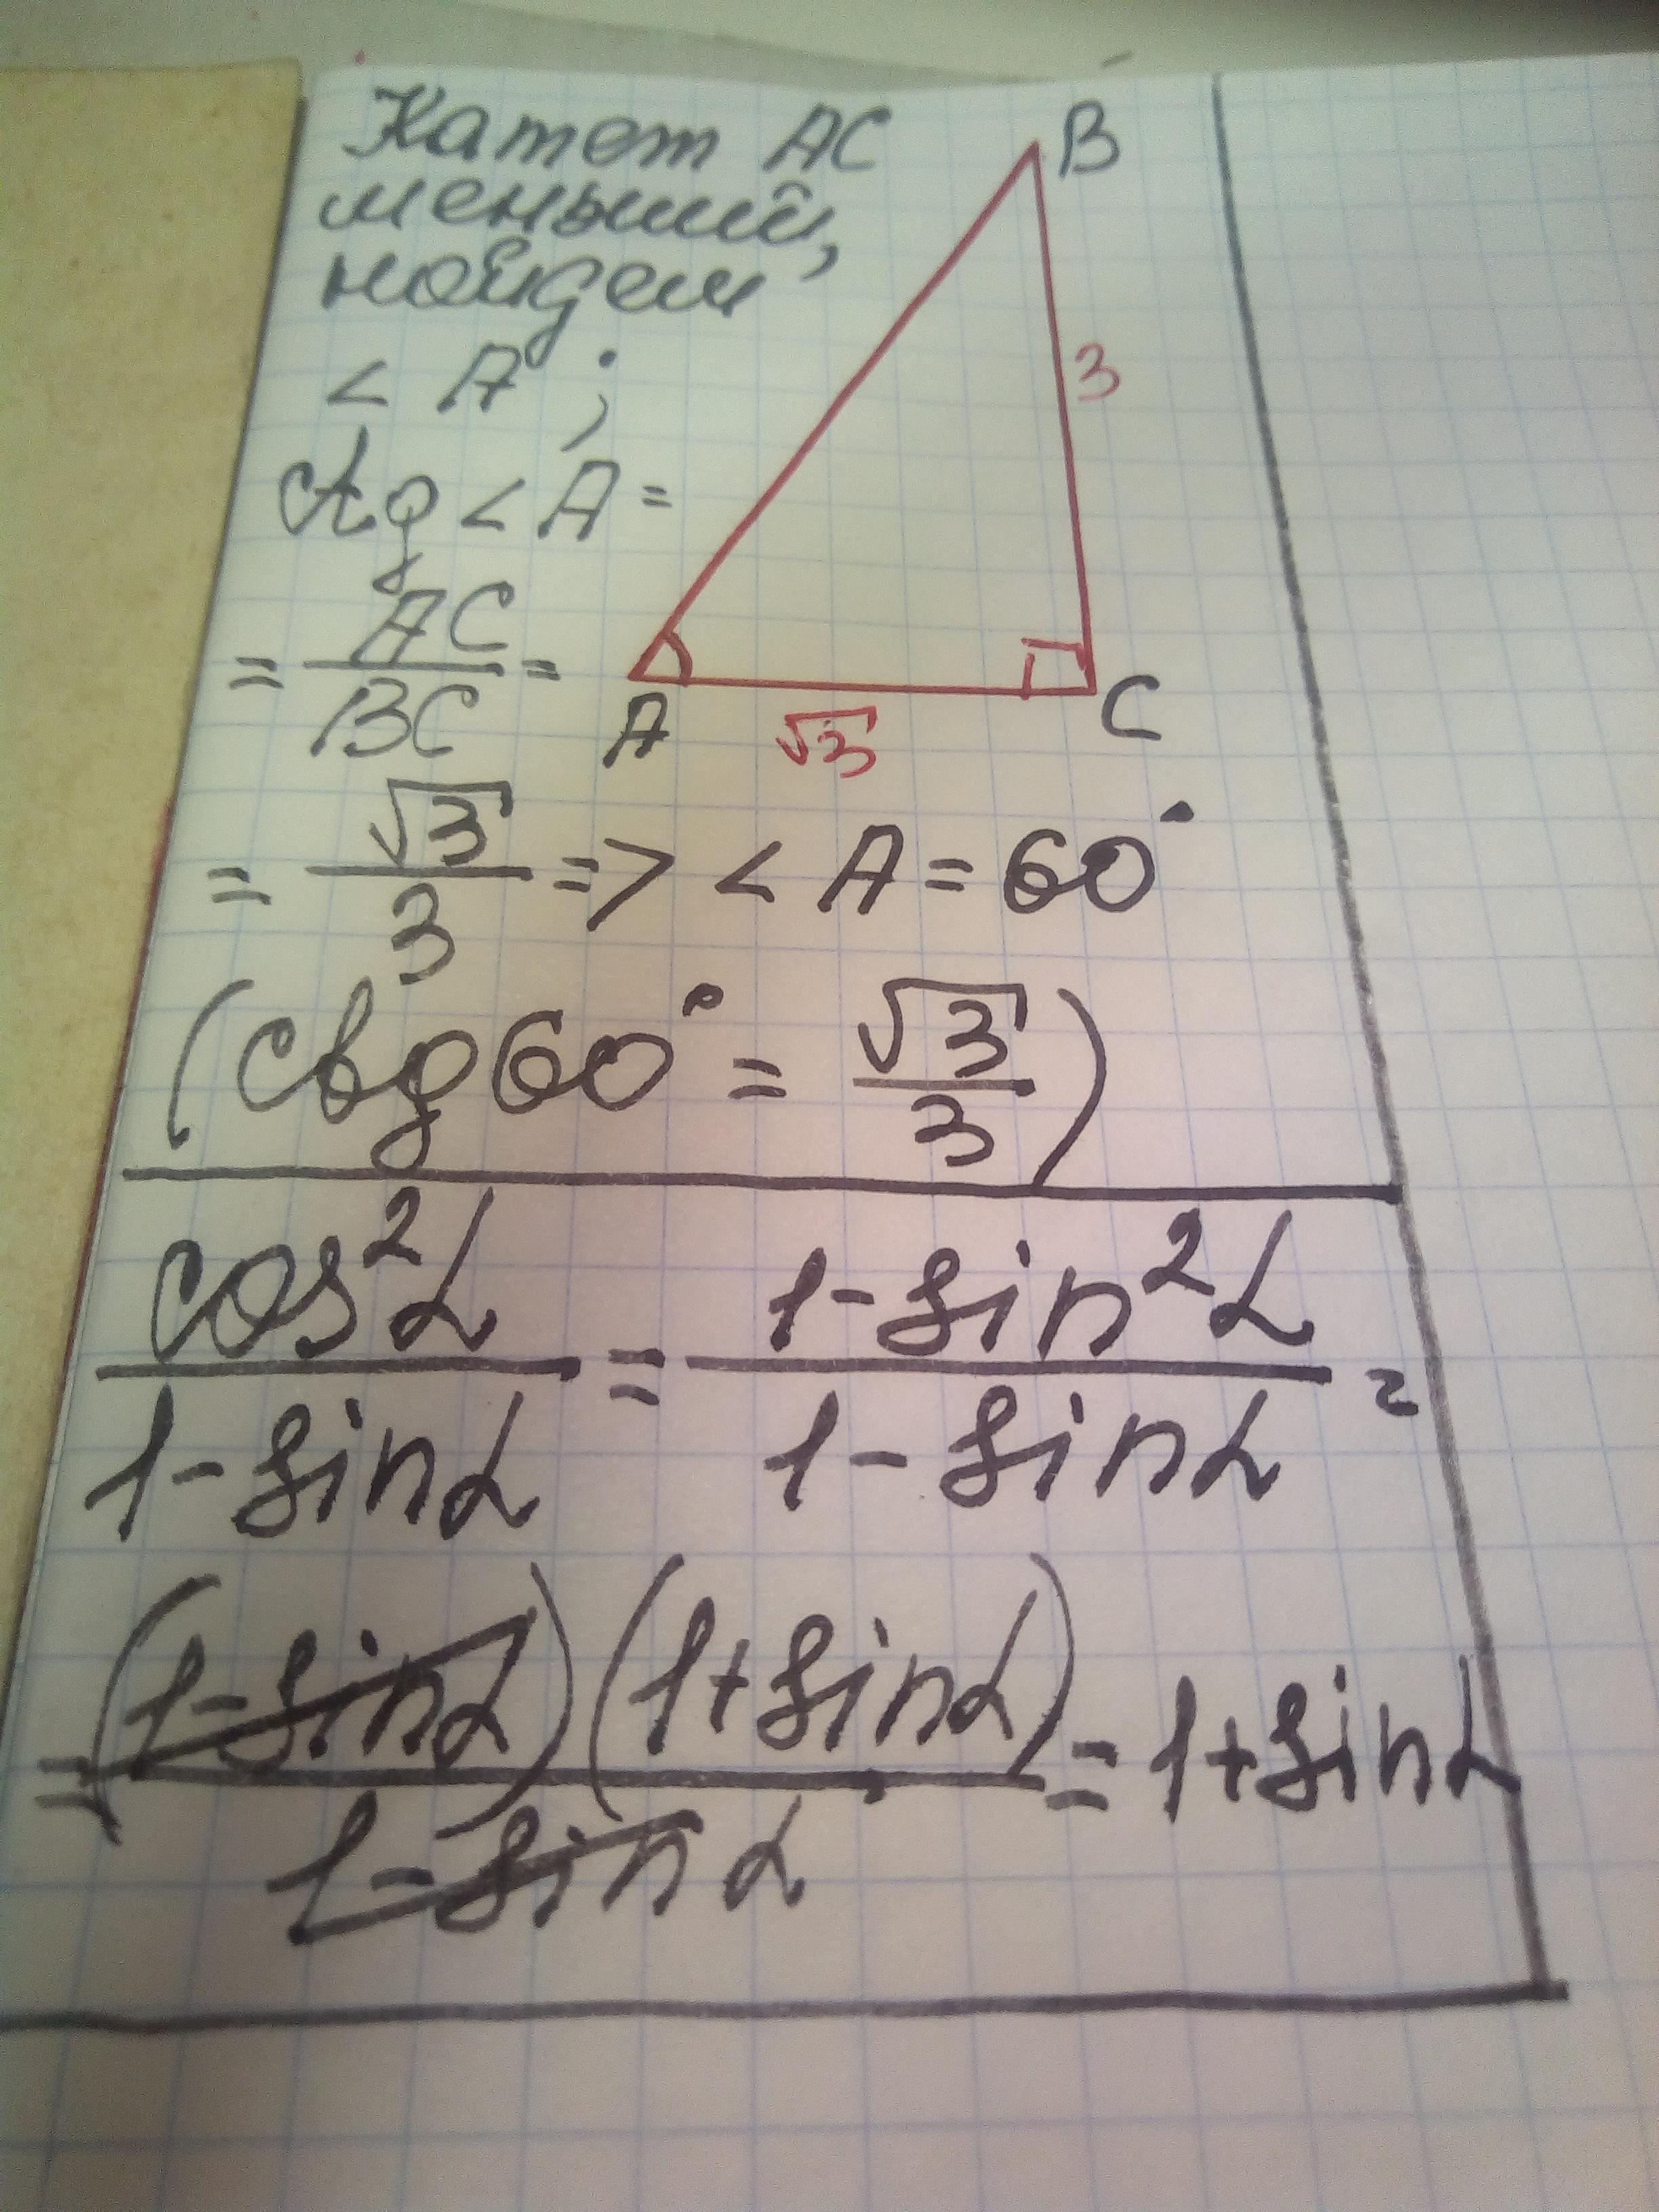 Катет AC
меньший,
найдем
< A ;
ctg < A =
= AC/BC =
B
3
A
√3
C
= √3/3 => < A = 60°
(ctg 60° = √3/3)
cos²α/1-sinα = 1-sin²α/1-sinα =
= (1-sinα)(1+sinα)/1-sinα = 1+sinα